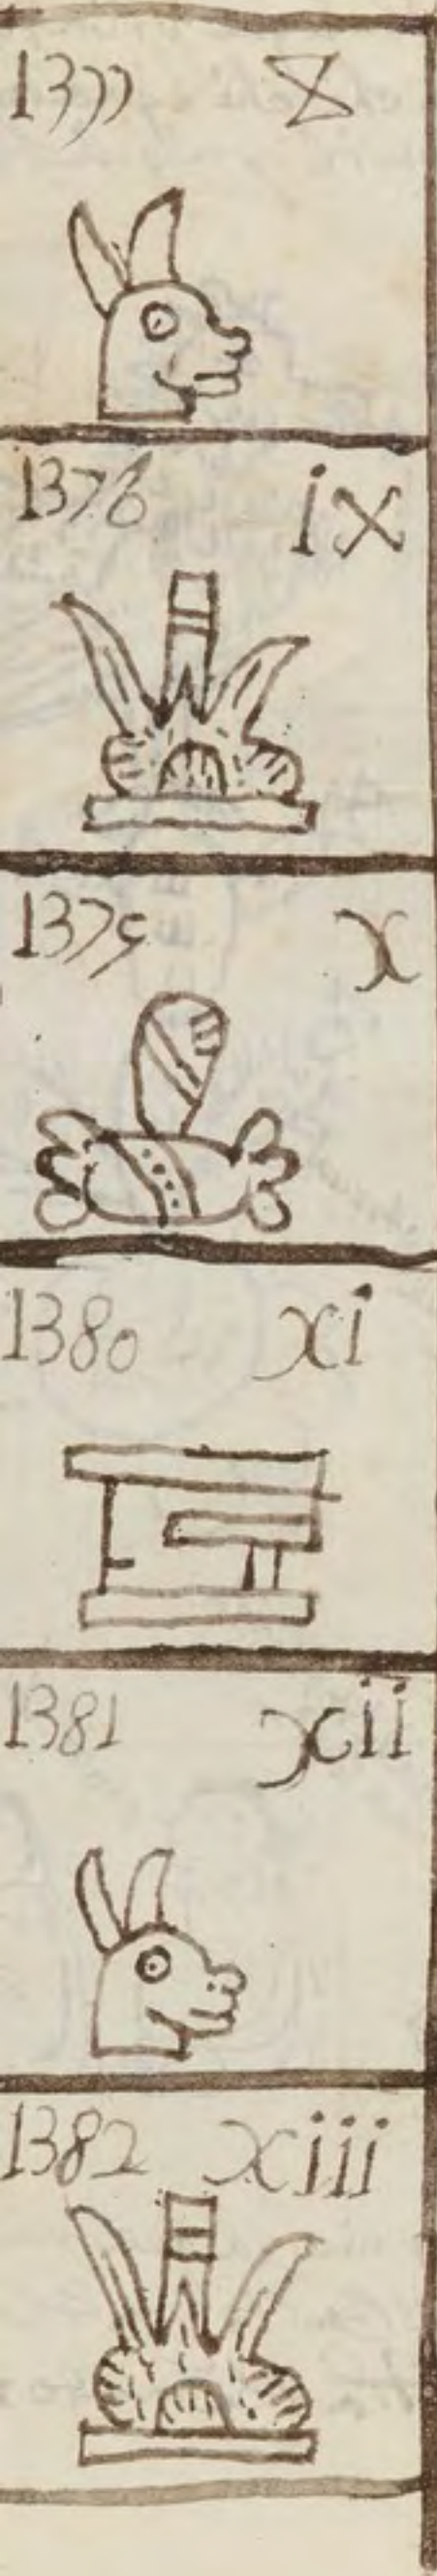 1377 8
1378 ix
1379 x
1380 xi
1381 xii
1382 xiii